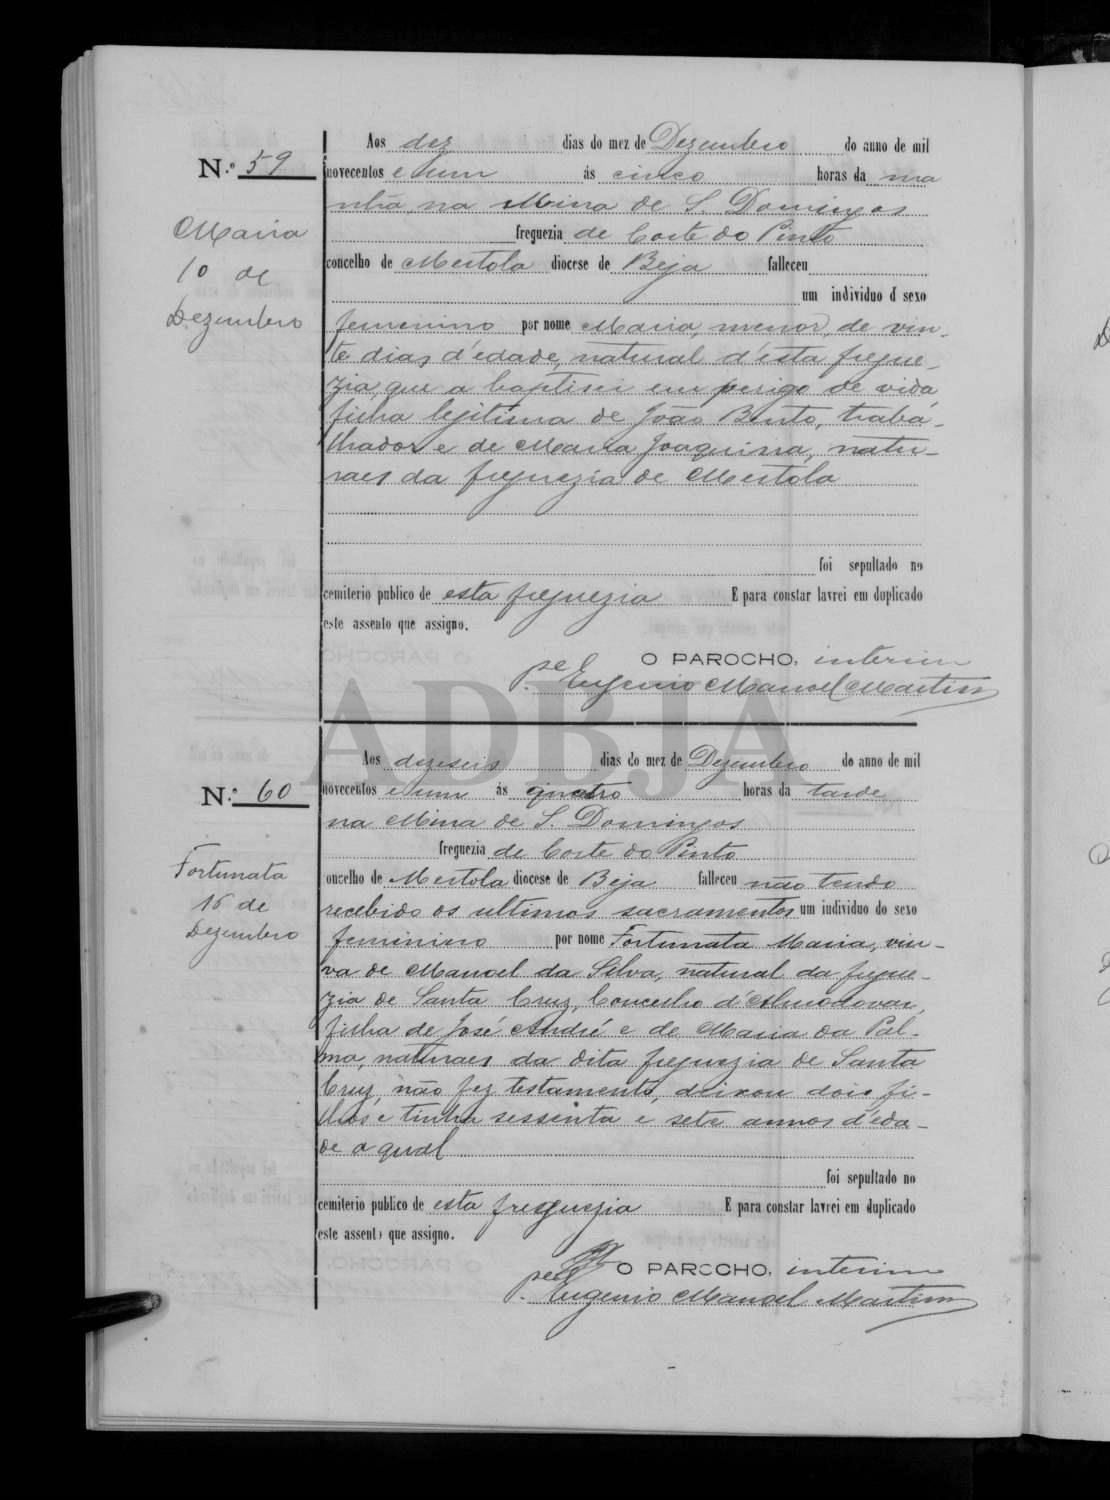 Aos dez dias do mez de Dezembro do anno de mil
N.º 59
novecentos e um ás cinco horas da ma
nhã, na Mina de S. Domingos
Maria
freguezia de Corte do Pinto
10 de
concelho de Mertola diocese de Beja falleceu
um individuo d sexo
Dezembro
femenino por nome Maria, menor, de vin-
te dias d'edade, natural d'esta fregue-
zia, que a baptisei em perigo de vida,
filha legitima de João Bento, traba-
lhador e de Maria Joaquina, natu-
raes da freguezia de Mertola
foi sepultado no
cemiterio publico de esta freguezia E para constar lavrei em duplicado
este assento que assigno.
pel O PAROCHO, interim
P. Eugenio Manoel Martins
ADBJA
Aos dezeseis dias do mez de Dezembro do anno de mil
N.º 60
novecentos e um ás quatro horas da tarde
na Mina de S. Domingos
freguezia de Corte do Pinto
Fortunata
oncelho de Mertola diocese de Beja falleceu não tendo
16 de
recebido os ultimos sacramentos um individuo do sexo
Dezembro
feminino por nome Fortunata Maria, viu-
va de Manoel da Silva, natural da fregue-
zia de Santa Cruz, Concelho d'Almodovar,
filha de José André e de Maria da Pal-
ma, naturaes da dita freguezia de Santa
Cruz, não fez testamento, deixou dois fi-
lhos e tinha sessenta e sete annos d'eda-
de a qual
foi sepultado no
cemiterio publico de esta freguezia E para constar lavrei em duplicado
este assento que assigno.
pel O PAROCHO, interim
P. Eugenio Manoel Martins